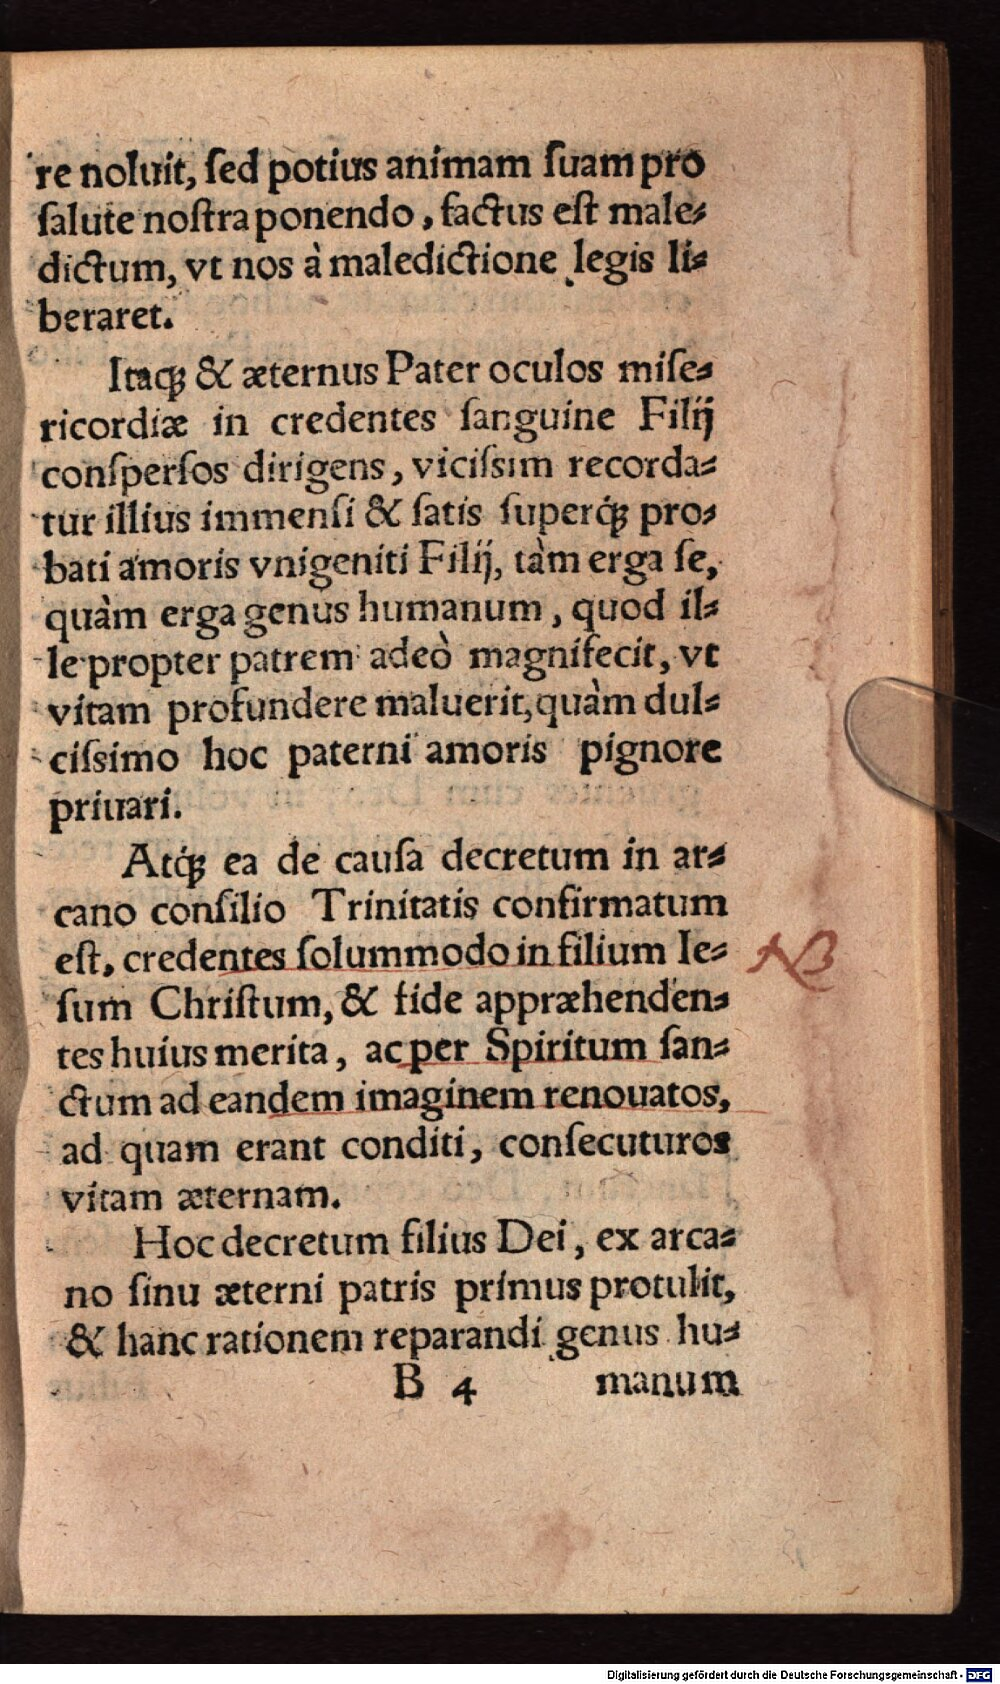 re noluit, ſed potius animam ſuam pro
ſalute noſtra ponendo, factus eſt male⸗
dictum, vt nos à maledictione legis li⸗
beraret.
Itaq́ꝫ & æternus Pater oculos miſe⸗
ricordiæ in credentes ſanguine Filij
conſperſos dirigens, viciſsim recorda⸗
tur illius immenſi & ſatis ſuperq́ꝫ pro⸗
bati amoris vnigeniti Filij, tàm erga ſe,
quàm erga genus humanum, quod il⸗
le propter patrem adeò magnifecit, vt
vitam profundere maluerit, quàm dul⸗
ciſsimo hoc paterni amoris pignore
priuari.
Atq́ꝫ ea de cauſa decretum in ar⸗
cano conſilio Trinitatis confirmatum
eſt, credentes ſolummodo in filium Ie⸗
ſum Chriſtum, & fide appræhenden⸗
tes huius merita, ac per Spiritum ſan⸗
ctum ad eandem imaginem renouatos,
ad quam erant conditi, conſecuturos
vitam æternam.
Hoc decretum filius Dei, ex arca⸗
no ſinu æterni patris primus protulit,
& hanc rationem reparandi genus hu⸗
B 4 manum
NB
Digitalisierung gefördert durch die Deutsche Forschungsgemeinschaft - DFG